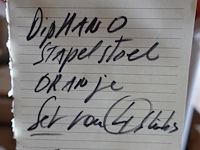 DipHANO
STAPELSTOEL
ORANje
Set van 4 stuks